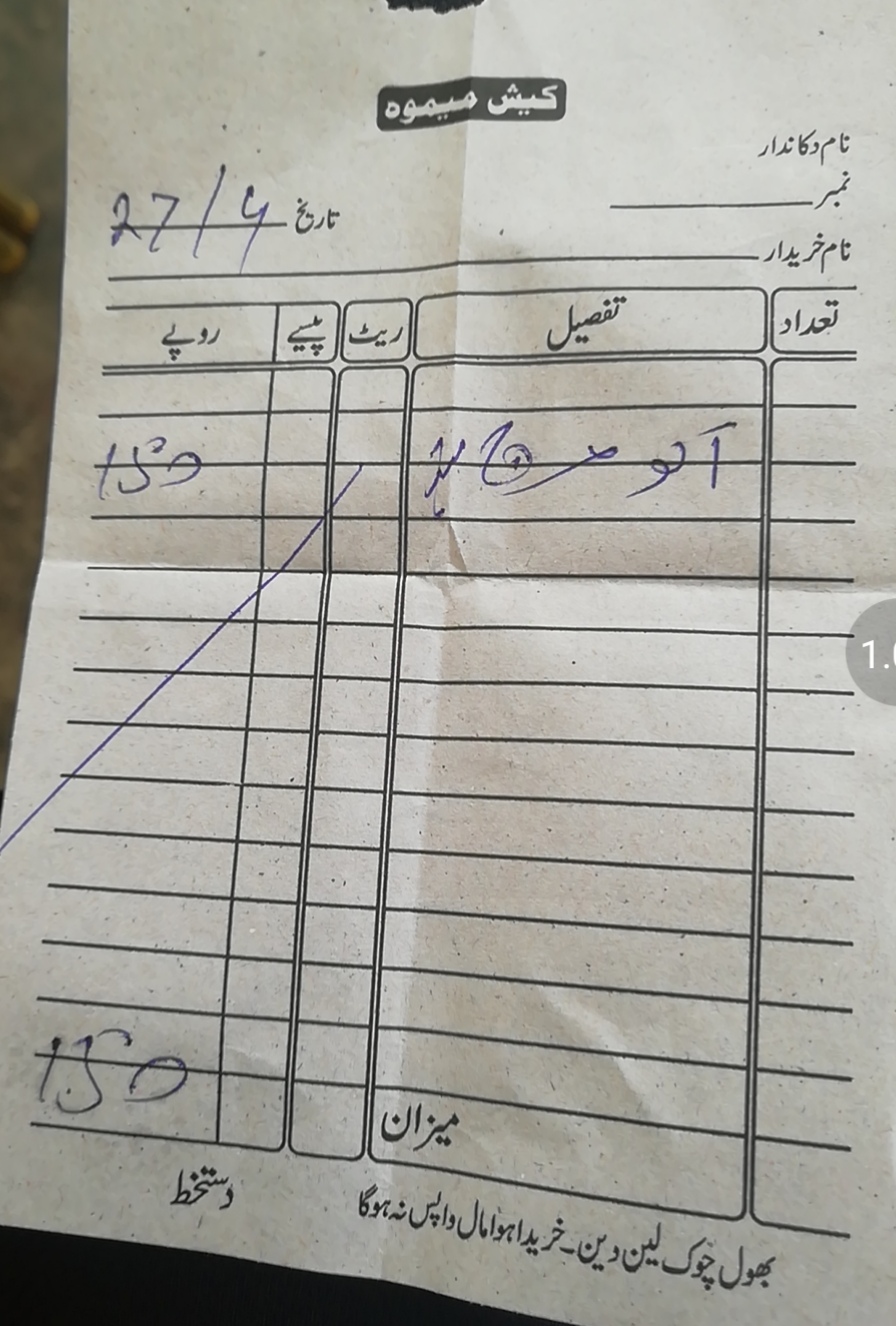 کیش میموہ
نام دکاندار
نمبر
تاریخ 27/4
نام خریدار
تعداد تفصیل ریٹ پیسے روپے
آلو 150
میزان 150
دستخط
بھول چوک لین دین۔ خریدا ہوا مال واپس نہ ہوگا
1.0